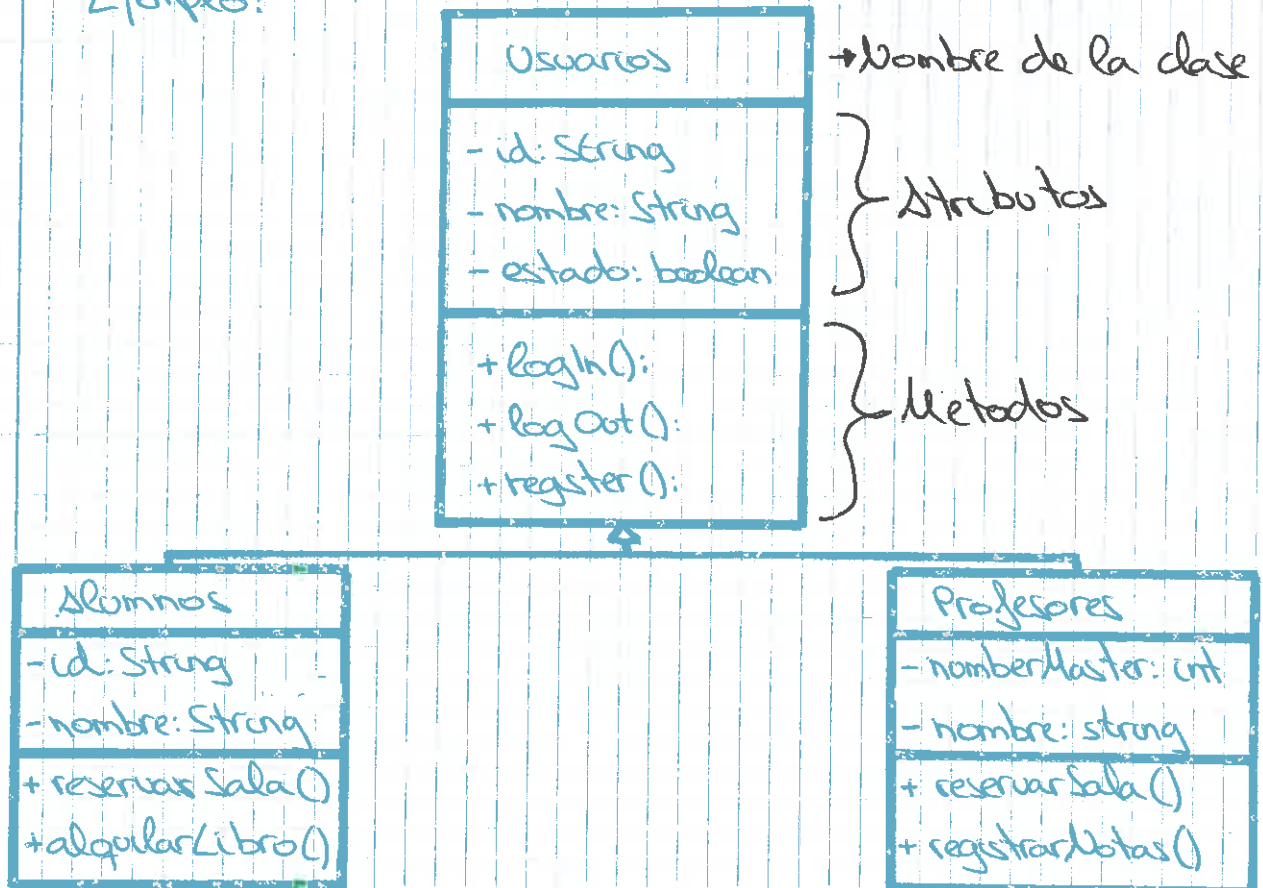 Ejemplo:
Usuarios
→Nombre de la clase
- id: String
- nombre: String
- estado: boolean
Atributos
+ logIn():
+ logOut():
+ register():
Metodos
Alumnos
- id: String
- nombre: String
+ reservar Sala()
+ alquilarLibro()
Profesores
- nomberMaster: int
- nombre: string
+ reservarSala()
+ registrarNotas()